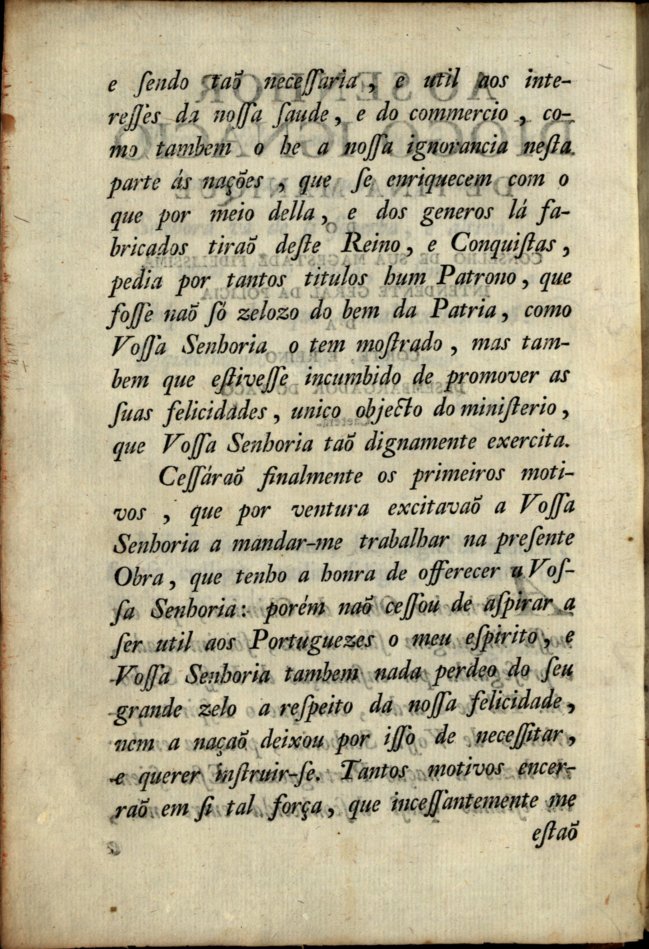 e ſendo taõ neceſſaria, e util aos inte-
reſſes da noſſa ſaude, e do commercio, co-
mo tambem o he a noſſa ignorancia neſta
parte ás nações, que ſe enriquecem com o
que por meio della, e dos generos lá fa-
bricados tiraõ deſte Reino, e Conquiſtas,
pedia por tantos titulos hum Patrono, que
foſſe naõ ſó zelozo do bem da Patria, como
Voſſa Senhoria o tem moſtrado, mas tam-
bem que eſtiveſſe incumbido de promover as
ſuas felicidades, unico objecto do miniſterio,
que Voſſa Senhoria taõ dignamente exercita.
Ceſſáraõ finalmente os primeiros moti-
vos, que por ventura excitavaõ a Voſſa
Senhoria a mandar-me trabalhar na preſente
Obra, que tenho a honra de offerecer a Voſ-
ſa Senhoria: porém naõ ceſſou de aſpirar a
ſer util aos Portuguezes o meu eſpirito, e
Voſſa Senhoria tambem nada perdeo do ſeu
grande zelo a reſpeito da noſſa felicidade,
nem a naçaõ deixou por iſſo de neceſſitar,
e querer inſtruir-ſe. Tantos motivos encer-
raõ em ſi tal força, que inceſſantemente me
eſtaõ